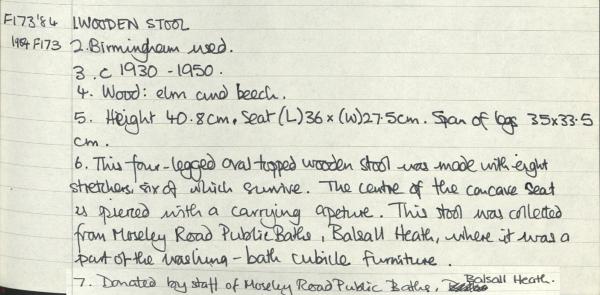 F173'84 1. WOODEN STOOL
1984 F173 2. Birmingham used.
3. c 1930 - 1950.
4. Wood: elm and beech.
5. Height 40.8cm. Seat (L)36 x (W)27.5cm. Span of legs 35x33.5
cm.
6. This four-legged oval topped wooden stool was made with eight
stretchers, six of which survive. The centre of the concave seat
is pierced with a carrying apeture. This stool was collected
from Moseley Road Public Baths, Balsall Heath, where it was a
part of the washing-bath cubicle furniture.
7. Donated by staff of Moseley Road Public Baths, Balsall Heath.